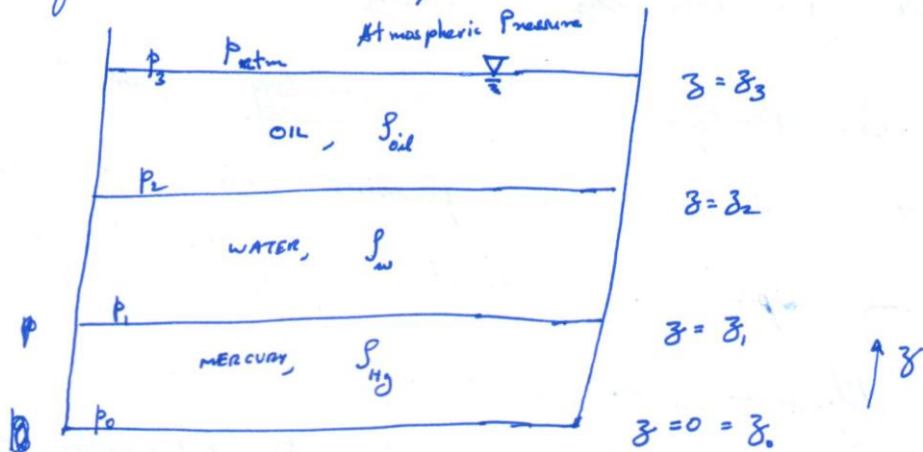 Atmospheric Pressure
p₃ patm
z = z₃
OIL, ρoil
p₂
z = z₂
WATER, ρw
p₁
p
z = z₁
MERCURY, ρHg
z
p₀
z = 0 = z₀